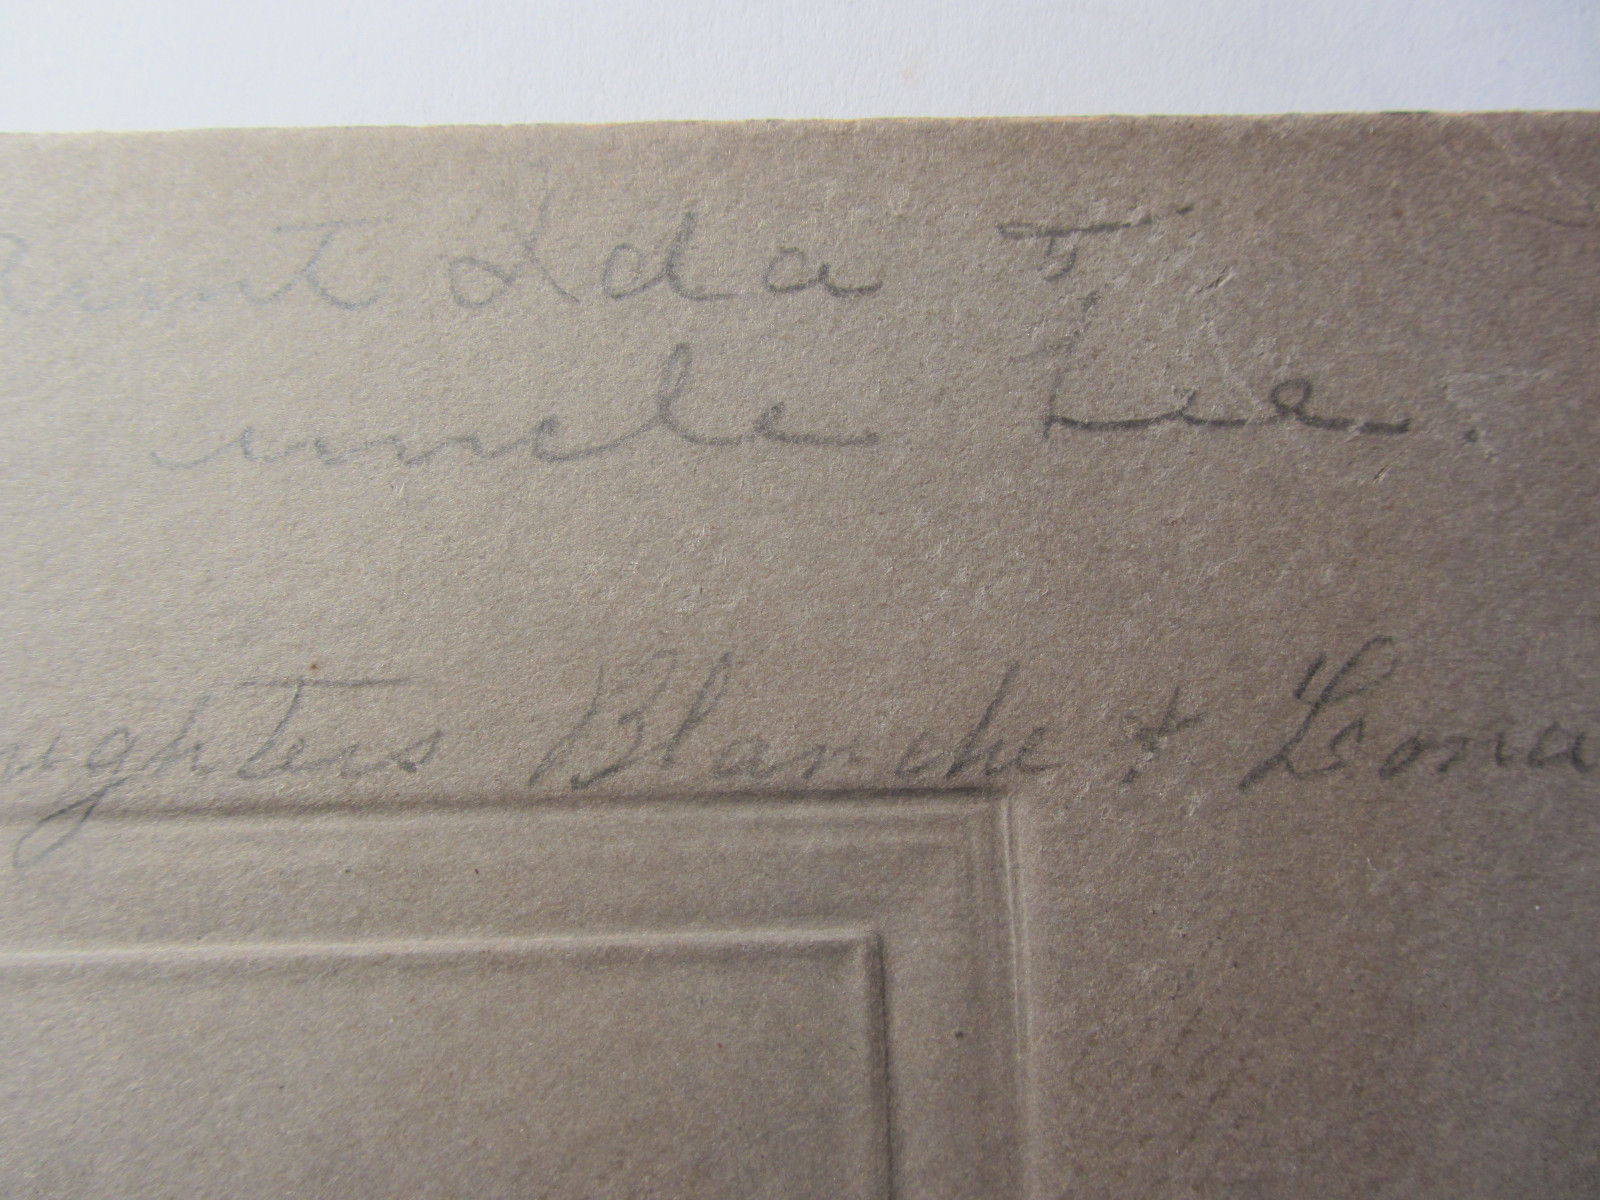 Aunt Ida +
uncle Lee.
ughters Blanche + Leona